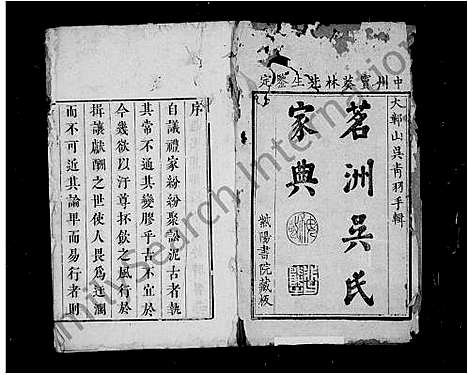 中州竇葵林先生鑒定
大鄣山吳青羽手輯
茗洲吳氏
家典
紫陽書院藏板
序
自議禮家紛紛聚訟泥古者執
其常不通其變膠乎古不宜於
今幾欲以汙尊抔飲之風行於
揖讓獻酬之世使人畏為迂濶
而不可近其論卑而易行者則
FamilySearch International